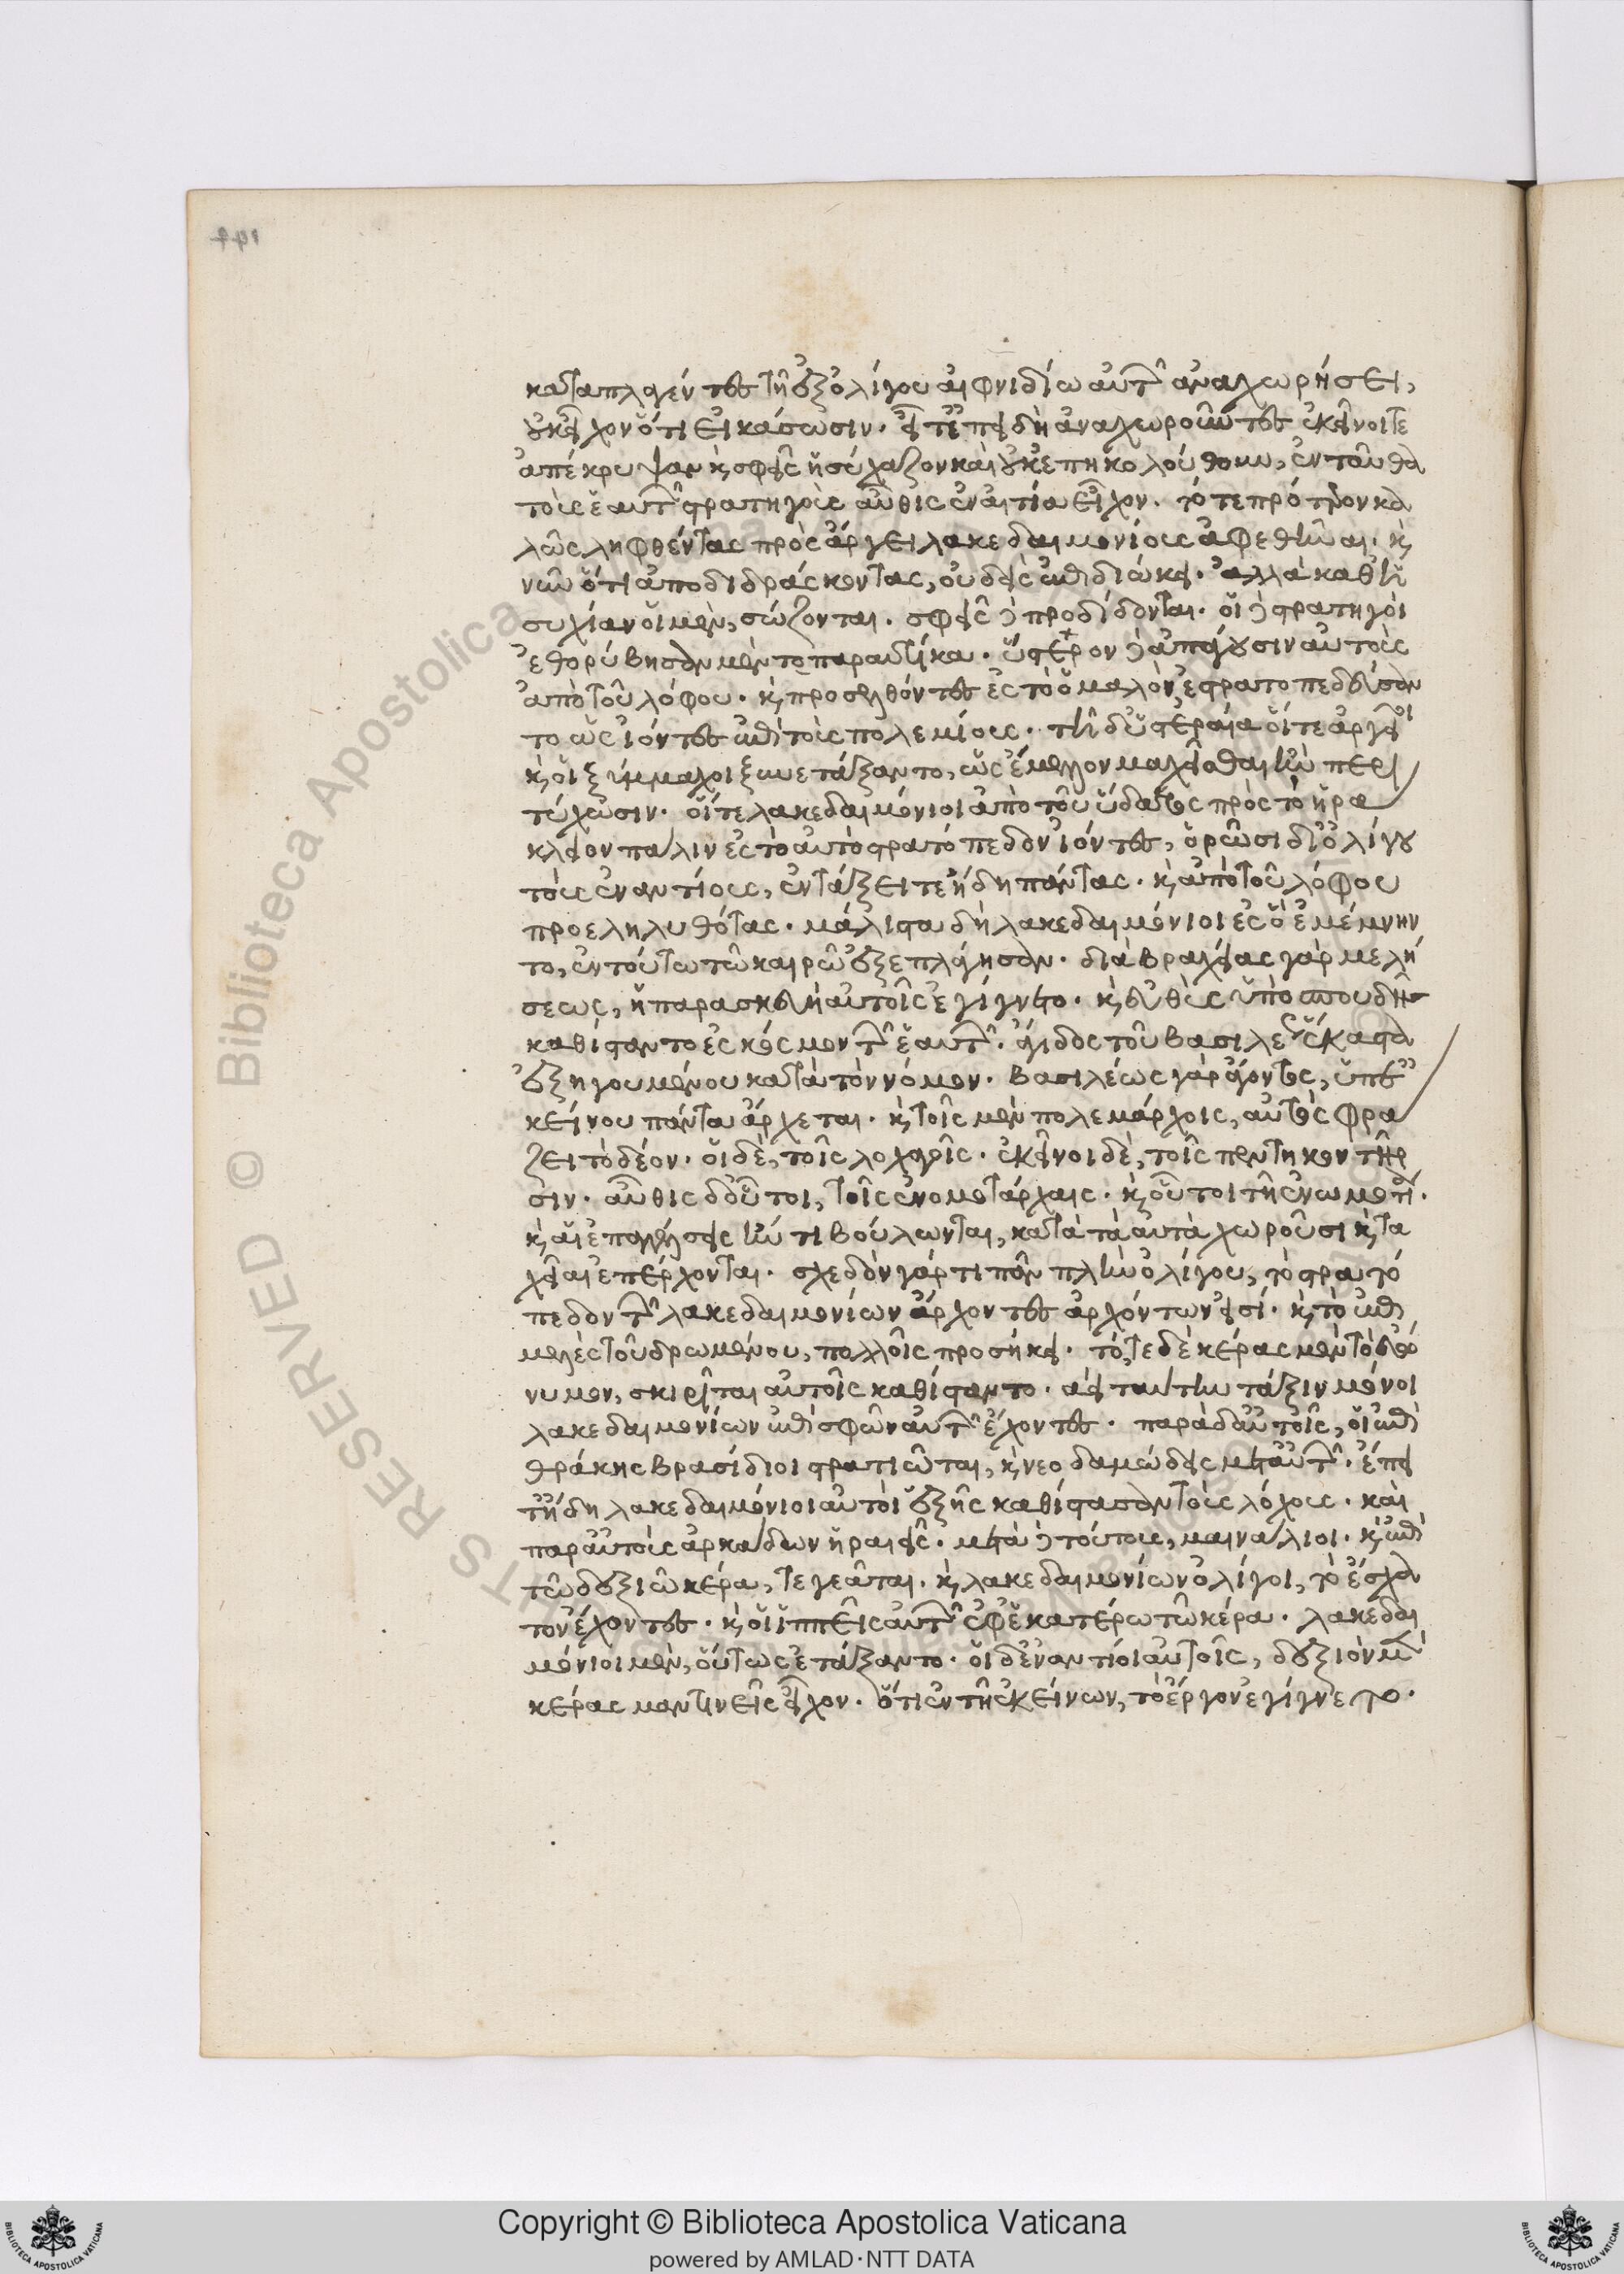 καταπλαγέντες τῆ ἐξ ὀλίγου αἰφνιδίω αὐτῶν ἀναχωρήσει,
οὐκ εἶχον ὅτι εἰκάσωσιν. εἶτ' ἐπειδὴ ἀναχωροῦντες ἐκεῖνοί τε
ἀπέκρυψαν κ σφεῖς ἡσύχαζον καὶ οὐκ ἐπηκολούθουν, ἐνταῦθα
τοὺς ἑαυτῶν στρατηγοὺς αὖθις ἐν αἰτία εἶχον. τό τε πρότερον κα
λῶς ληφθέντας πρὸς ἄργει λακεδαιμονίους ἀφεθῆναι. κ
νῦν ὅτι ἀποδιδράσκοντας, οὐδεὶς ἐπιδιώκει. ἀλλὰ καθ' ἡ
συχίαν οἱ μὲν, σώζονται. σφεῖς δὲ προδίδονται. οἱ δὲ στρατηγοὶ
ἐθορύβησαν μὲν τὸ παραυτίκα. ὕστερον δὲ ἀπάγουσιν αὐτοὺς
ἀπὸ τοῦ λόφου. κ προσελθόντες ἐς τὸ ὁμαλὸν ἐστρατοπεδεύσαν
το ὡς ἰόντες ἐπὶ τοὺς πολεμίους. τῆ δ' ὑστεραία οἵ τε ἀργεῖοι
κ οἱ ξύμμαχοι ξυνετάξαντο, ὡς ἔμελλον μαχεῖσθαι ἢν περι
τύχωσιν. οἵ τε λακεδαιμόνιοι ἀπὸ τοῦ ὕδατος πρὸς τὸ ἡρά
κλειον πάλιν ἐς τὸ αὐτὸ στρατόπεδον ἰόντες, ὁρῶσι δι' ὀλίγου
τοὺς ἐναντίους, ἐν τάξει τε ἤδη πάντας. κ ἀπὸ τοῦ λόφου
προεληλυθότας. μάλιστα δὴ λακεδαιμόνιοι ἐς ὃ ἐμέμνην
το, ἐν τούτω τῶ καιρῶ ἐξεπλάγησαν. διὰ βραχείας γὰρ μελή
σεως, ἡ παρασκευὴ αὐτοῖς ἐγίγνετο. κ εὐθὺς ὑπὸ σπουδῆς
καθίσταντο ἐς κόσμον τῶν ἑαυτῶν. ἄγιδος τοῦ βασιλέως ἕκαστα
ἐξηγουμένου κατὰ τὸν νόμον. βασιλέως γὰρ ἄγοντος, ὑπ' ἐ
κείνου πάντα ἄρχεται. κ τοῖς μὲν πολεμάρχοις, αὐτὸς φρά
ζει τὸ δέον. οἱ δὲ, τοῖς λοχαγοῖς. ἐκεῖνοι δὲ, τοῖς πεντηκοντῆρ
σιν. αὖθις δ' οὗτοι, τοῖς ἐνομοτάρχαις. κ οὗτοι τῆ ἐνωμοτία.
κ αἱ ἐπαγγέλσεις ἤν τι βούλωνται, κατὰ τὰ αὐτὰ χωροῦσι κ τα
χεῖαι ἐπέρχονται. σχεδὸν γάρ τι πᾶν πλὴν ὀλίγου, τὸ στρατό
πεδον τῶν λακεδαιμονίων ἄρχοντες ἀρχόντων εἰσί. κ τὸ ἐπι
μελὲς τοῦ δρωμένου, πολλοῖς προσήκει. τότε δὲ κέρας μὲν τὸ εὐώ
νυμον, σκιρῖται αὐτοῖς καθίσταντο. ἀεὶ ταύτην τάξιν μόνοι
λακεδαιμονίων ἐπὶ σφῶν αὐτῶν ἔχοντες. παρὰ δ' αὐτοῖς, οἱ ἐπὶ
θράκης βρασίδιοι στρατιῶται, κ νεοδαμώδεις μετ' αὐτῶν. ἔπει
τ' ἤδη λακεδαιμόνιοι αὐτοὶ ἑξῆς καθίστασαν τοὺς λόχους. καὶ
παρ' αὐτοὺς ἀρκάδων ἡραιεῖς. μετὰ δὲ τούτους, μαινάλιοι. κ ἐπὶ
τῶ δεξιῶ κέρα, τεγεᾶται. κ λακεδαιμονίων ὀλίγοι, τὸ ἔσχα
τον ἔχοντες. κ οἱ ἱππεῖς αὐτῶν ἐφ' ἑκατέρω τῶ κέρα. λακεδαι
μόνιοι μὲν, οὕτως ἐτάξαντο. οἱ δ' ἐναντίοι αὐτοῖς, δεξιὸν μὲν
κέρας μαντινεῖς εἶχον. ὅτι ἐν τῆ ἐκείνων, τὸ ἔργον ἐγίγνετο.
Copyright © Biblioteca Apostolica Vaticana
powered by AMLAD·NTT DATA